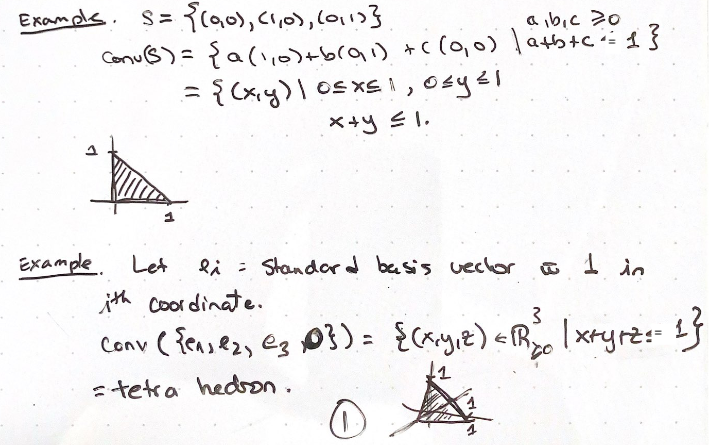 Example. S = {(0,0), (1,0), (0,1)}
a,b,c ≥0
Conv(S) = { a(1,0)+b(0,1) +c(0,0) | a+b+c = 1 }
= {(x,y) | 0≤x≤1, 0≤y≤1
x+y ≤ 1.
1
1
Example. Let ei = Standard basis vector w 1 in
ith coordinate.
Conv ({e1, e2, e3, 0}) = {(x,y,z) ∈ ℝ³≥0 | x+y+z ≤ 1}
= tetra hedron.
1
1
1
1